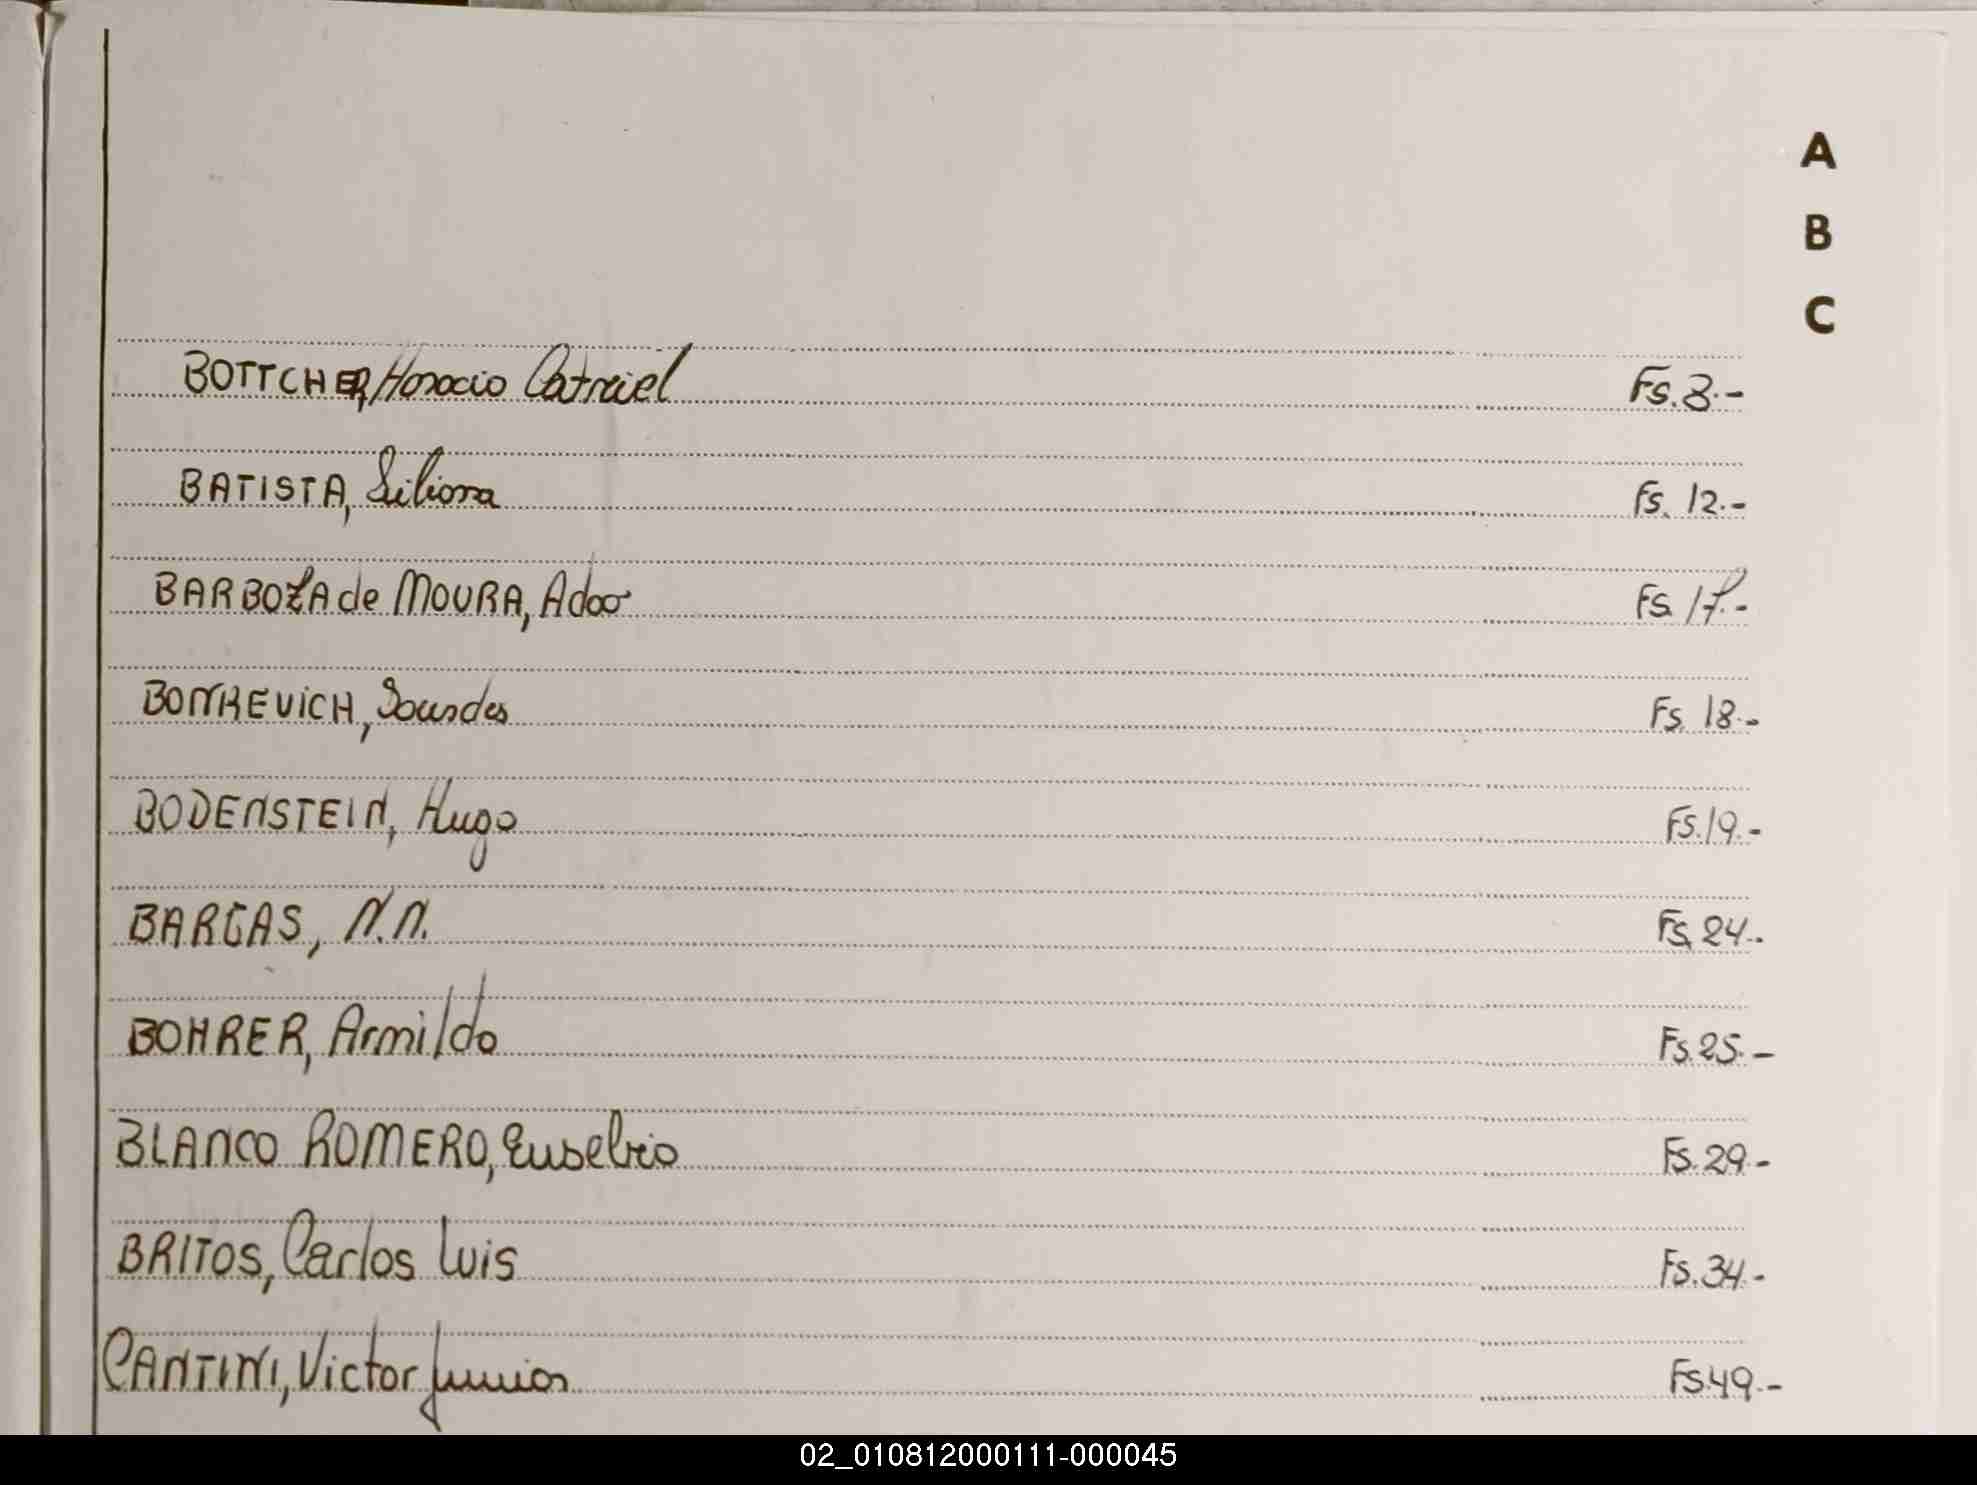 A
B
C
BOTTCHER, Horacio Catriel Fs. 8.-
BATISTA, Liliana Fs. 12.-
BARBOZA de MOURA, Adao Fs. 17.-
BONKEVICH, Lourdes Fs. 18.-
BODENSTEIN, Hugo Fs. 19.-
BARGAS, N.N. Fs. 24.-
BOHRER, Armildo Fs. 25.-
BLANCO ROMERO, Eusebio Fs. 29.-
BRITOS, Carlos Luis Fs. 34.-
CANTINI, Victor Junior Fs. 49.-
02_010812000111-000045